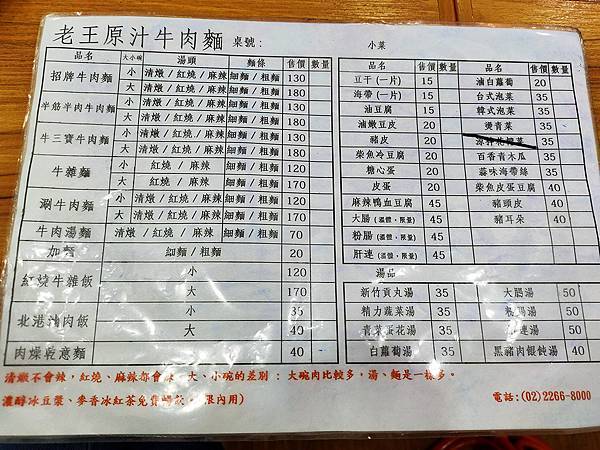 老王原汁牛肉麵 桌號:
品名 大小碗 湯頭 麵條 售價 數量
招牌牛肉麵 小 清燉/紅燒/麻辣 細麵/粗麵 130
大 清燉/紅燒/麻辣 細麵/粗麵 180
半筋半肉牛肉麵 小 清燉/紅燒/麻辣 細麵/粗麵 130
大 清燉/紅燒/麻辣 細麵/粗麵 180
牛三寶牛肉麵 小 清燉/紅燒/麻辣 細麵/粗麵 130
大 清燉/紅燒/麻辣 細麵/粗麵 180
牛雜麵 小 紅燒/麻辣 細麵/粗麵 120
大 紅燒/麻辣 細麵/粗麵 170
涮牛肉麵 小 清燉/紅燒/麻辣 細麵/粗麵 120
大 清燉/紅燒/麻辣 細麵/粗麵 170
牛肉湯麵 清燉/紅燒/麻辣 細麵/粗麵 70
加麵 細麵/粗麵 20
紅燒牛雜飯 小 120
大 170
北港滷肉飯 小 35
大 40
肉燥乾意麵 40
小菜
品名 售價 數量 品名 售價 數量
豆干(一片) 15 滷白蘿蔔 20
海帶(一片) 15 台式泡菜 35
油豆腐 15 韓式泡菜 35
滷嫩豆皮 20 燙青菜 35
豬皮 20 35
柴魚冷豆腐 20 百香青木瓜 35
糖心蛋 20 蒜味海帶絲 35
皮蛋 20 柴魚皮蛋豆腐 40
麻辣鴨血豆腐 45 豬頭皮 40
大腸(溫體、限量) 45 豬耳朵 40
粉腸(溫體、限量) 45
肝連(溫體、限量) 45
湯品
新竹貢丸湯 35 大腸湯 50
精力蔬菜湯 35 粉腸湯 50
青菜蛋花湯 35 肝連湯 50
白蘿蔔湯 35 黑豬肉餛飩湯 40
清燉不會辣,紅燒、麻辣都會辣 大、小碗的差別 : 大碗肉比較多,湯、麵是一樣多。
濃醇冰豆漿、麥香冰紅茶免費暢飲。(限內用) 電話:(02)2266-8000